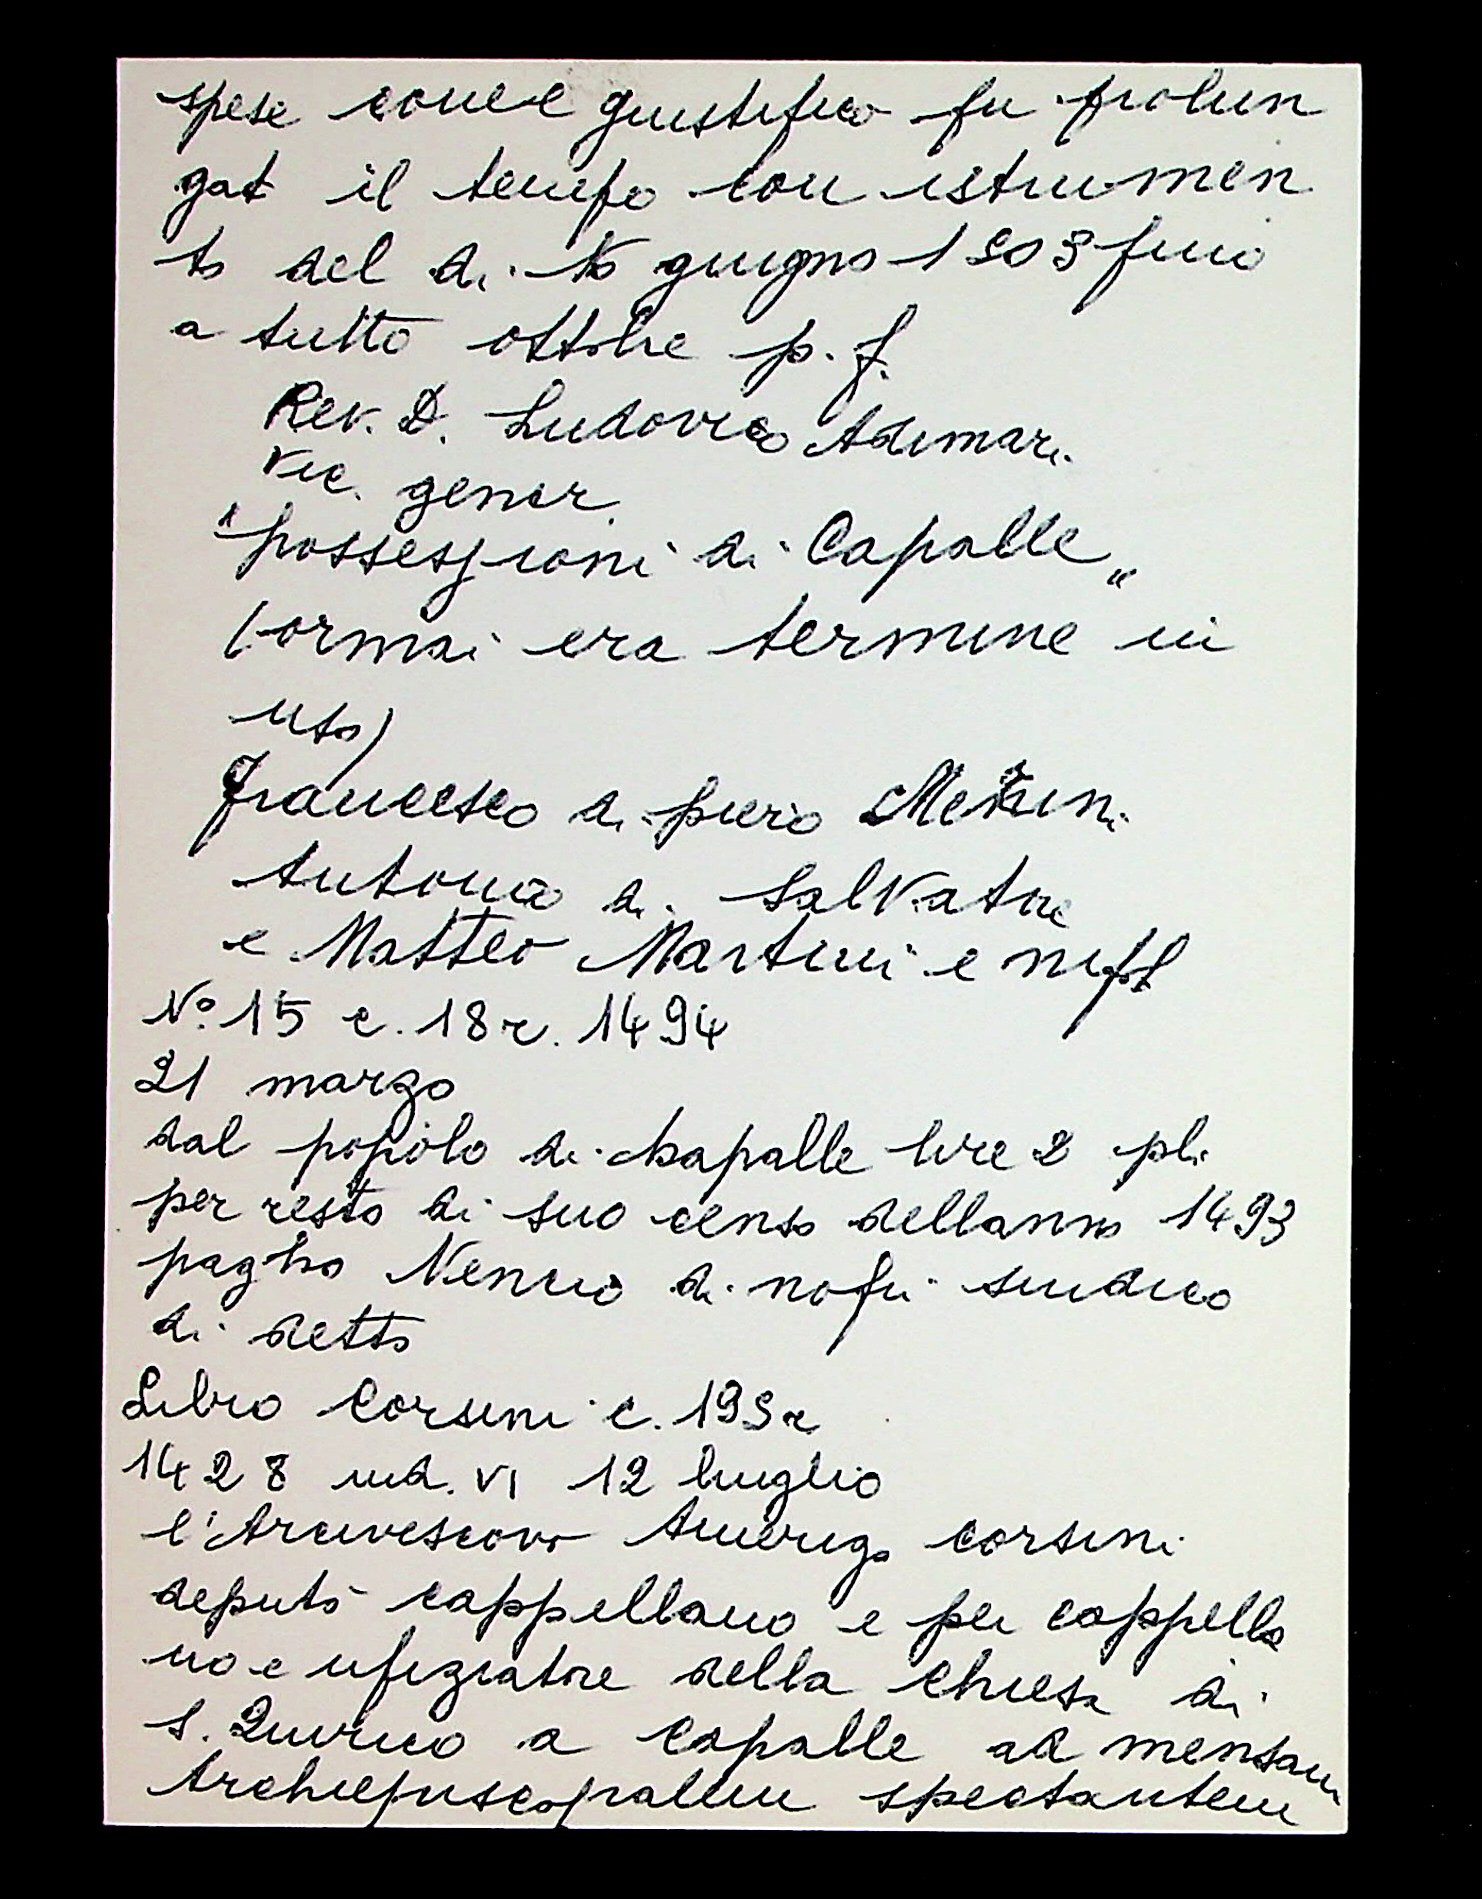 spese come e giustifico fu prolun
gat il tempo con istrumen
to del di giugno 1503 fino
a tutto ottobre p. f.
Rev. D. Ludovico Adimari
Vic. gener.
"possessioni di Capalle"
(ormai era termine in
uso)
Francesco di piero
Antonio di Salvatore
e Matteo Martini e
N.° 15 c. 18 r. 1494
21 marzo
dal popolo di chapalle lire 2 pli
per resto di suo censo dellanno 1493
pagho Nencio di nofri sindico
di detto
Libro Corsini c. 193 r
1428 ind. VI 12 luglio
l'Arcivescovo Amerigo corsini
deputò cappellano e per cappella
no e ufiziatore della chiesa di
S. Quirico a Capalle ad mensam
Archiepiscopalem spectantem